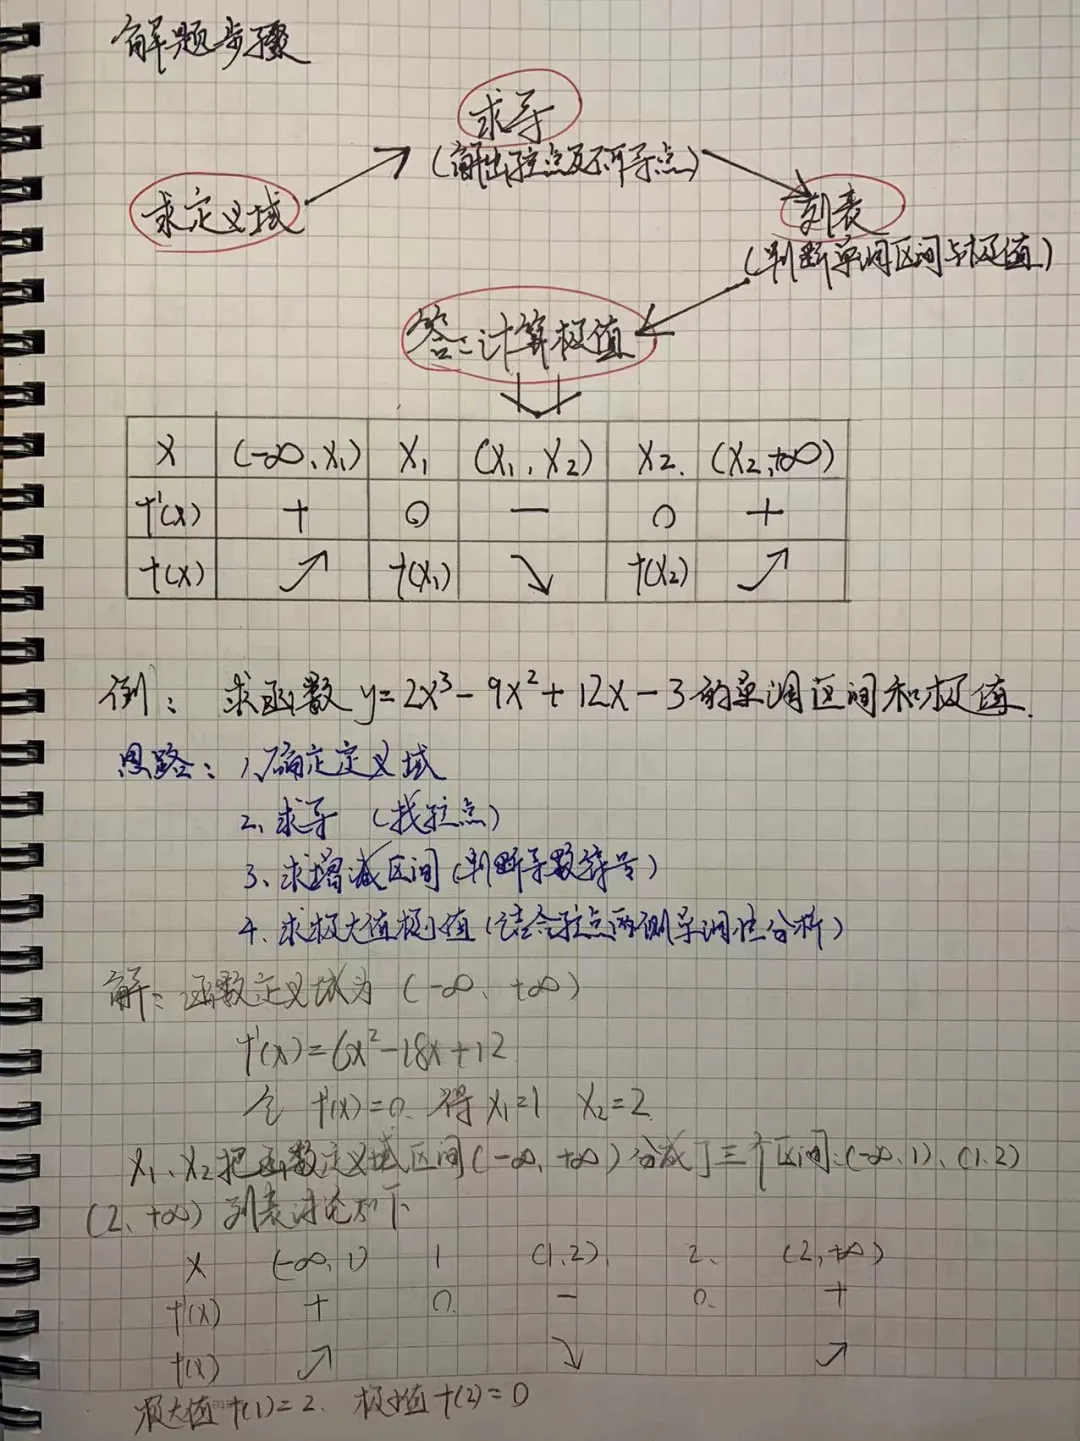 解题步骤
求导
(解出驻点及不可导点)
求定义域
列表
(判断单调区间与极值)
答:计算极值
x (-∞,x₁) x₁ (x₁,x₂) x₂ (x₂,+∞)
f'(x) + 0 − 0 +
f(x) ↗ f(x₁) ↘ f(x₂) ↗
例: 求函数 y=2x³-9x²+12x-3的单调区间和极值.
思路: 1、确定定义域
2、求导 (找驻点)
3、求增减区间(判断导数符号)
4、求极大值极小值(结合驻点两侧单调性分析)
解: 函数定义域为 (-∞, +∞)
f'(x)=6x²-18x+12
令 f'(x)=0. 得 x₁=1 x₂=2
x₁、x₂把函数定义域区间(-∞, +∞)分成了三个区间:(-∞,1)、(1,2)
(2,+∞) 列表讨论如下
x (-∞,1) 1 (1,2) 2 (2,+∞)
f'(x) + 0 − 0 +
f(x) ↗ ↘ ↗
极大值 f(1)=2. 极小值 f(2)=0